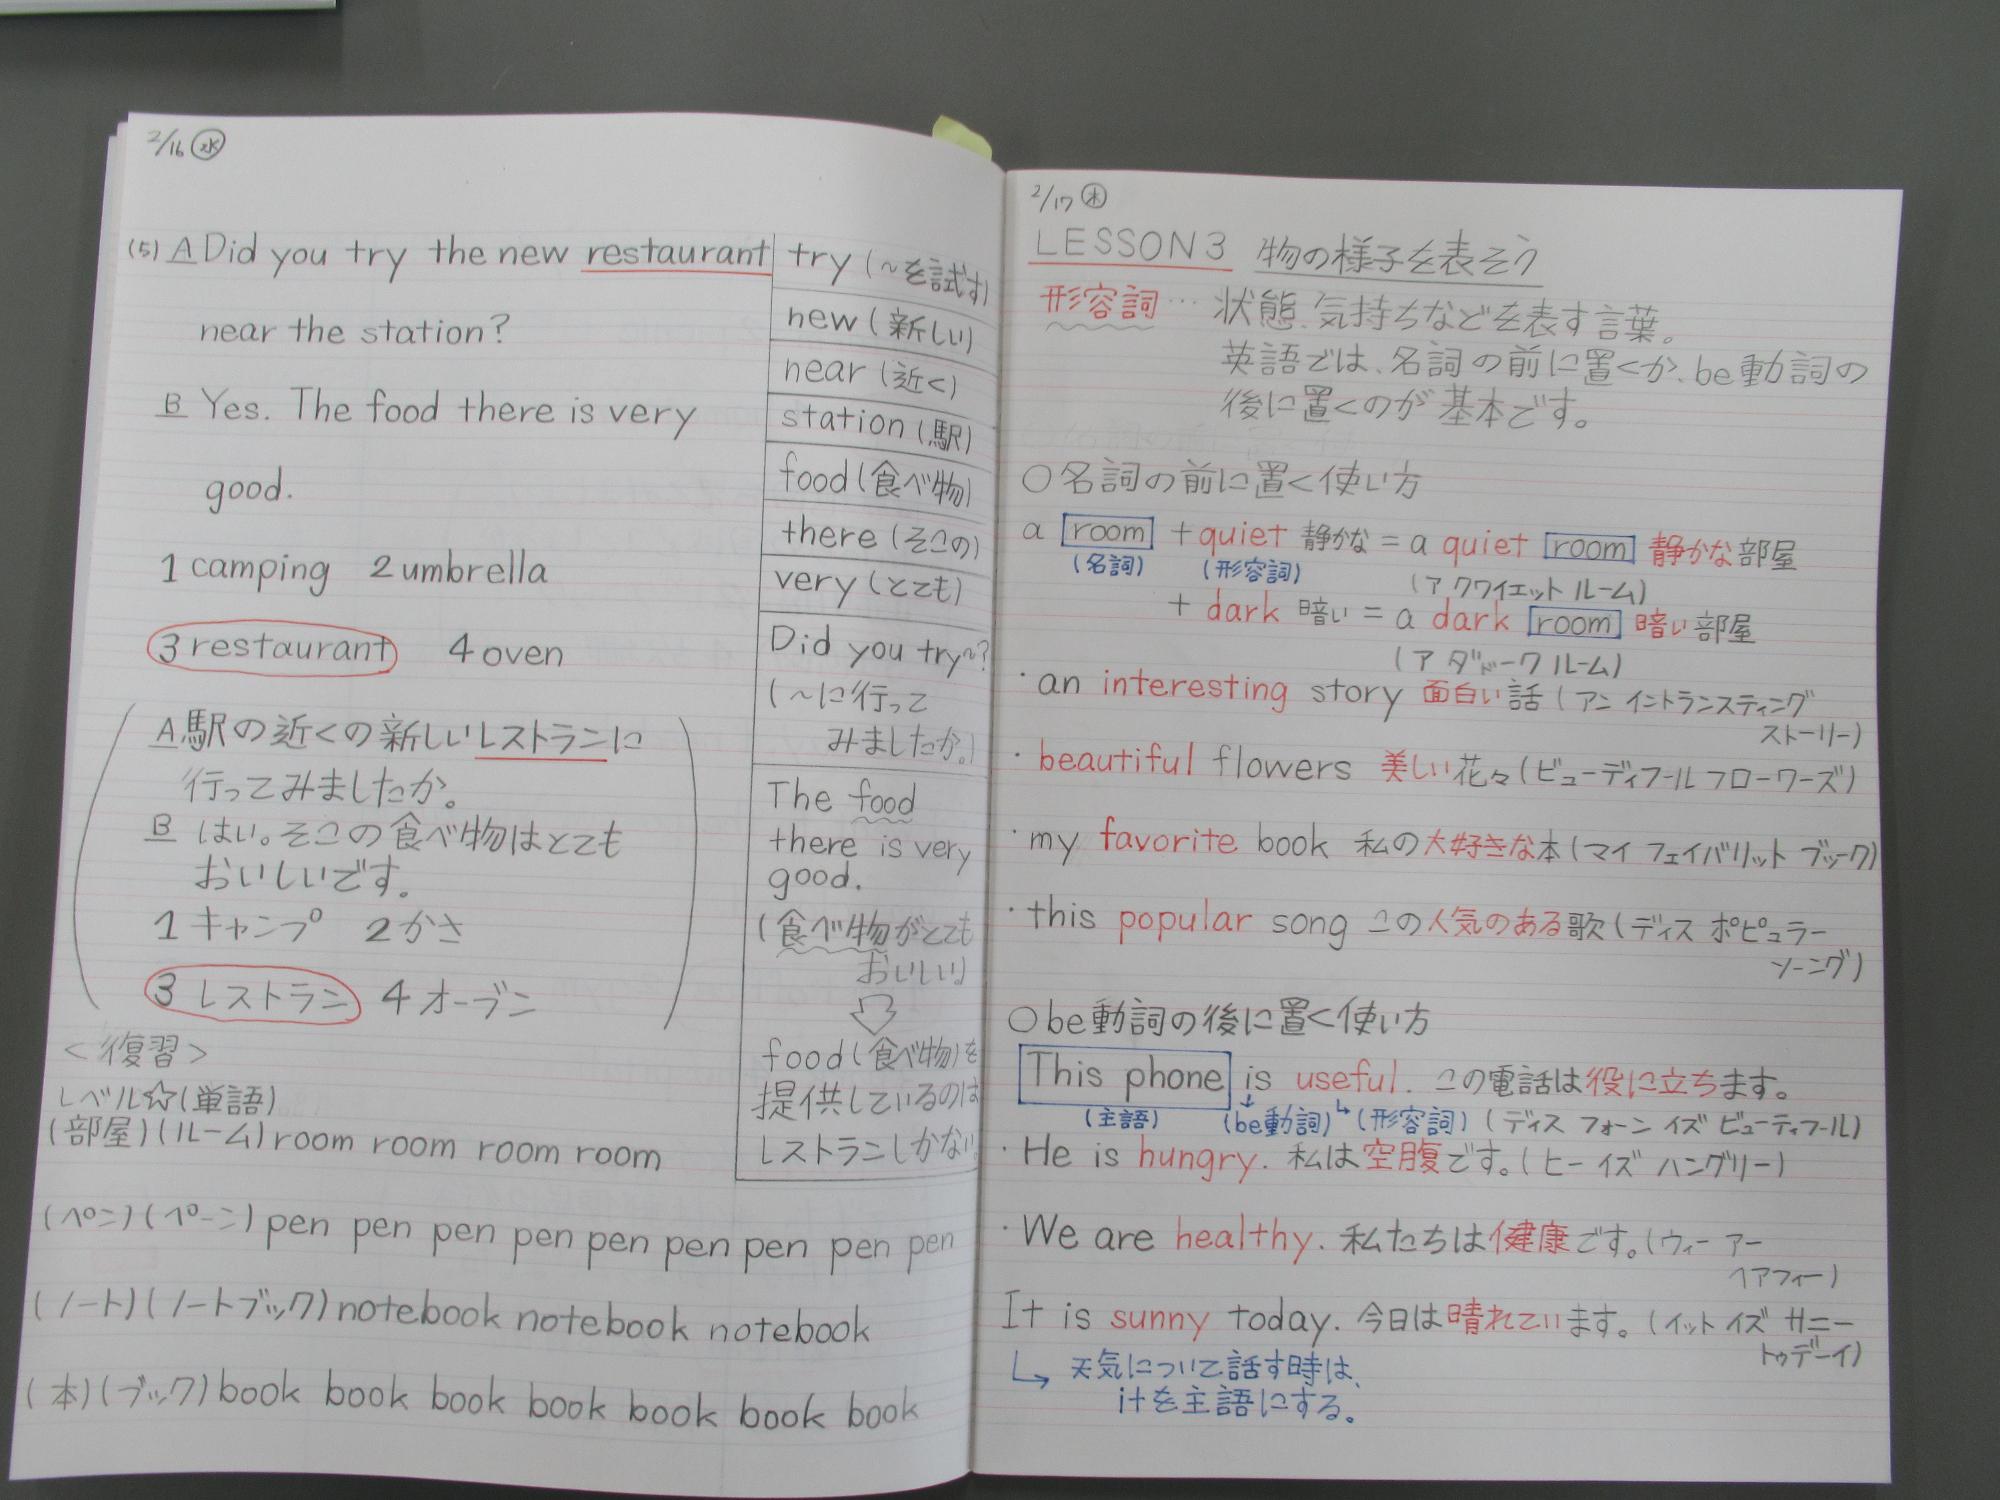 2/16 ㊌
(5) A Did you try the new restaurant
near the station?
B Yes. The food there is very
good.
1 camping 2 umbrella
3 restaurant 4 oven
A 駅の近くの新しいレストランに
行ってみましたか。
B はい。そこの食べ物はとても
おいしいです。
1 キャンプ 2 かさ
3 レストラン 4 オーブン
<復習>
レベル☆(単語)
(部屋)(ルーム) room room room room
(ペン)(ペーン) pen pen pen pen pen pen pen pen pen
(ノート)(ノートブック) notebook notebook notebook
(本)(ブック) book book book book book book book
try (~を試す)
new (新しい)
near (近く)
station (駅)
food (食べ物)
there (そこの)
very (とても)
Did you try~?
(~に行って
みましたか。)
The food
there is very
good.
(食べ物がとても
おいしい)
food (食べ物)を
提供しているのは
レストランしかない。
2/17 ㊍
LESSON3 物の様子を表そう
形容詞… 状態、気持ちなどを表す言葉。
英語では、名詞の前に置くか、be動詞の
後に置くのが基本です。
○名詞の前に置く使い方
a room + quiet 静かな = a quiet room 静かな部屋
(名詞) (形容詞) (ア クワイエット ルーム)
+ dark 暗い = a dark room 暗い部屋
(ア ダドーク ルーム)
・an interesting story 面白い話 (アン イントランスティング
ストーリー)
・beautiful flowers 美しい花々 (ビューディフール フローワーズ)
・my favorite book 私の大好きな本 (マイ フェイバリット ブック)
・this popular song この人気のある歌 (ディス ポピュラー
ソーング)
○be動詞の後に置く使い方
This phone is useful. この電話は役に立ちます。
(主語) (be動詞) (形容詞) (ディス フォーン イズ ビューティフール)
・He is hungry. 私は空腹です。(ヒー イズ ハングリー)
・We are healthy. 私たちは健康です。(ウィー アー
ヘアフィー)
It is sunny today. 今日は晴れています。(イット イズ サニー
トゥデーイ)
↳ 天気について話す時は、
itを主語にする。